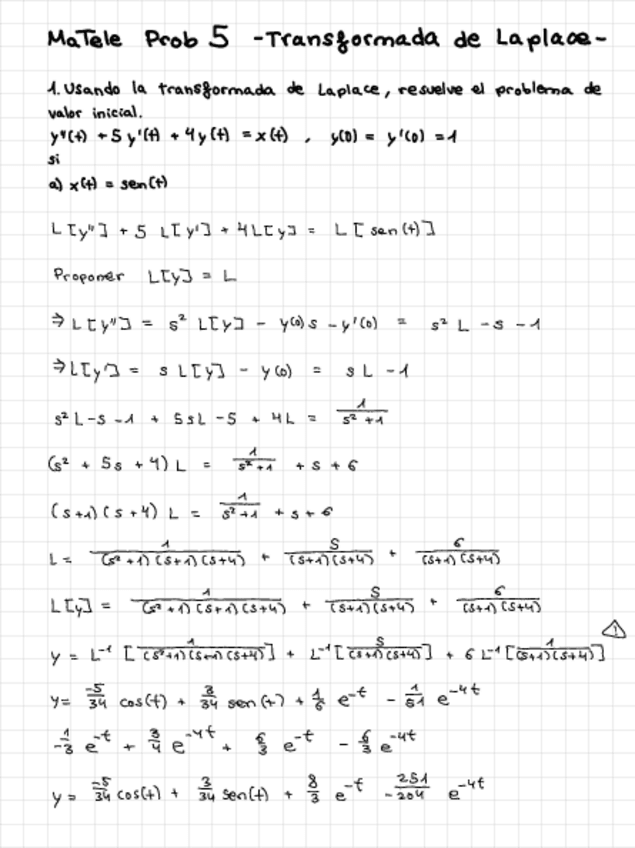 MaTele Prob 5 - Transformada de Laplace -
1. Usando la transformada de Laplace, resuelve el problema de
valor inicial.
y''(t) + 5 y'(t) + 4 y(t) = x(t) , y(0) = y'(0) = 1
si
a) x(t) = sen(t)
L[y''] + 5 L[y'] + 4L[y] = L[sen(t)]
Proponer L[y] = L
⇒ L[y''] = s² L[y] - y(0)s - y'(0) = s² L - s - 1
⇒ L[y'] = s L[y] - y(0) = sL - 1
s² L - s - 1 + 5sL - 5 + 4L = 1/(s²+1)
(s² + 5s + 4) L = 1/(s²+1) + s + 6
(s+1)(s+4) L = 1/(s²+1) + s + 6
L = 1/((s²+1)(s+1)(s+4)) + s/((s+1)(s+4)) + 6/((s+1)(s+4))
L[y] = 1/((s²+1)(s+1)(s+4)) + s/((s+1)(s+4)) + 6/((s+1)(s+4))
y = L⁻¹ [1/((s²+1)(s+1)(s+4))] + L⁻¹ [s/((s+1)(s+4))] + 6 L⁻¹ [1/((s+1)(s+4))]
y = -5/34 cos(t) + 3/34 sen(t) + 1/6 e^-t - 1/51 e^-4t
1/-3 e^-t + 3/4 e^-4t + 6/3 e^-t - 6/3 e^-4t
y = -5/34 cos(t) + 3/34 sen(t) + 8/3 e^-t 251/-204 e^-4t